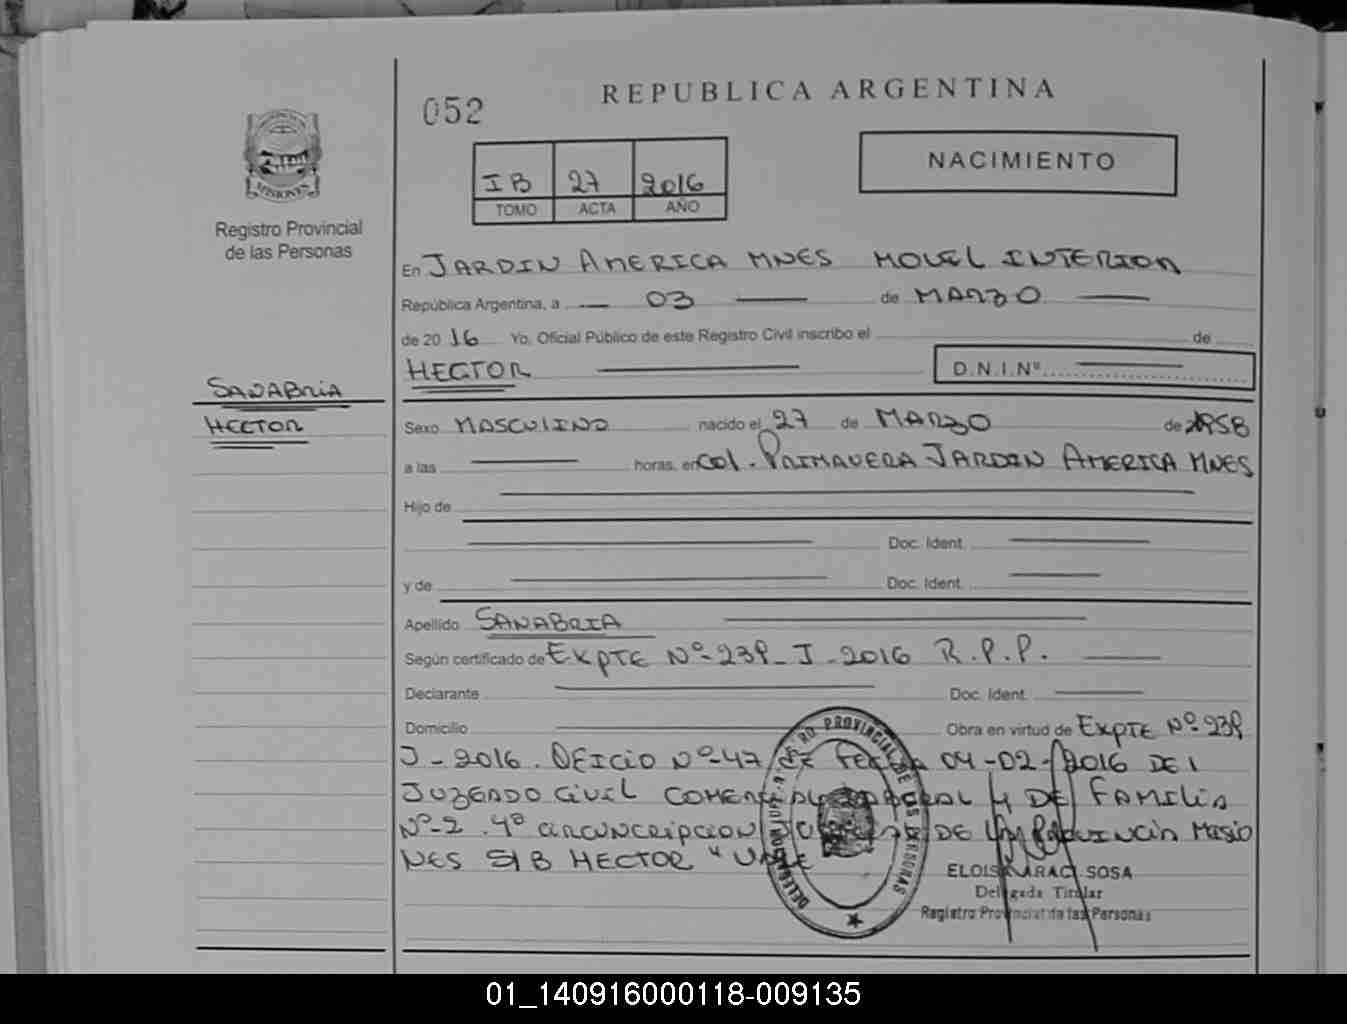 REPUBLICA ARGENTINA
052
NACIMIENTO
IB 27 2016
TOMO ACTA AÑO
MISIONES
Registro Provincial
de las Personas
En JARDIN AMERICA MNES MOVIL INTERIOR
República Argentina, a 03 de MARZO
de 2016 Yo, Oficial Público de este Registro Civil inscribo el de
HECTOR D.N.I.Nº
SANABRIA
HECTOR
Sexo MASCULINO nacido el 27 de MARZO de 1958
a las horas, en COL. PRIMAVERA JARDIN AMERICA MNES
Hijo de
Doc. Ident.
y de Doc. Ident.
Apellido SANABRIA
Según certificado de EXPTE Nº-239-J-2016 R.P.P.
Declarante Doc. Ident.
Domicilio Obra en virtud de EXPTE Nº-239
J-2016. OFICIO Nº-47 DE FECHA 04-02-2016 DEL
JUZGADO CIVIL COMERCIAL LABORAL Y DE FAMILIA
Nº-2. 4º CIRCUNCRIPCION DE LA PROVINCIA MISIO
NES S/B HECTOR "VALE
REGISTRO PROVINCIAL DE LAS PERSONAS
ELOISA ARACI SOSA
Delegada Titular
Registro Provincial de las Personas
01_140916000118-009135